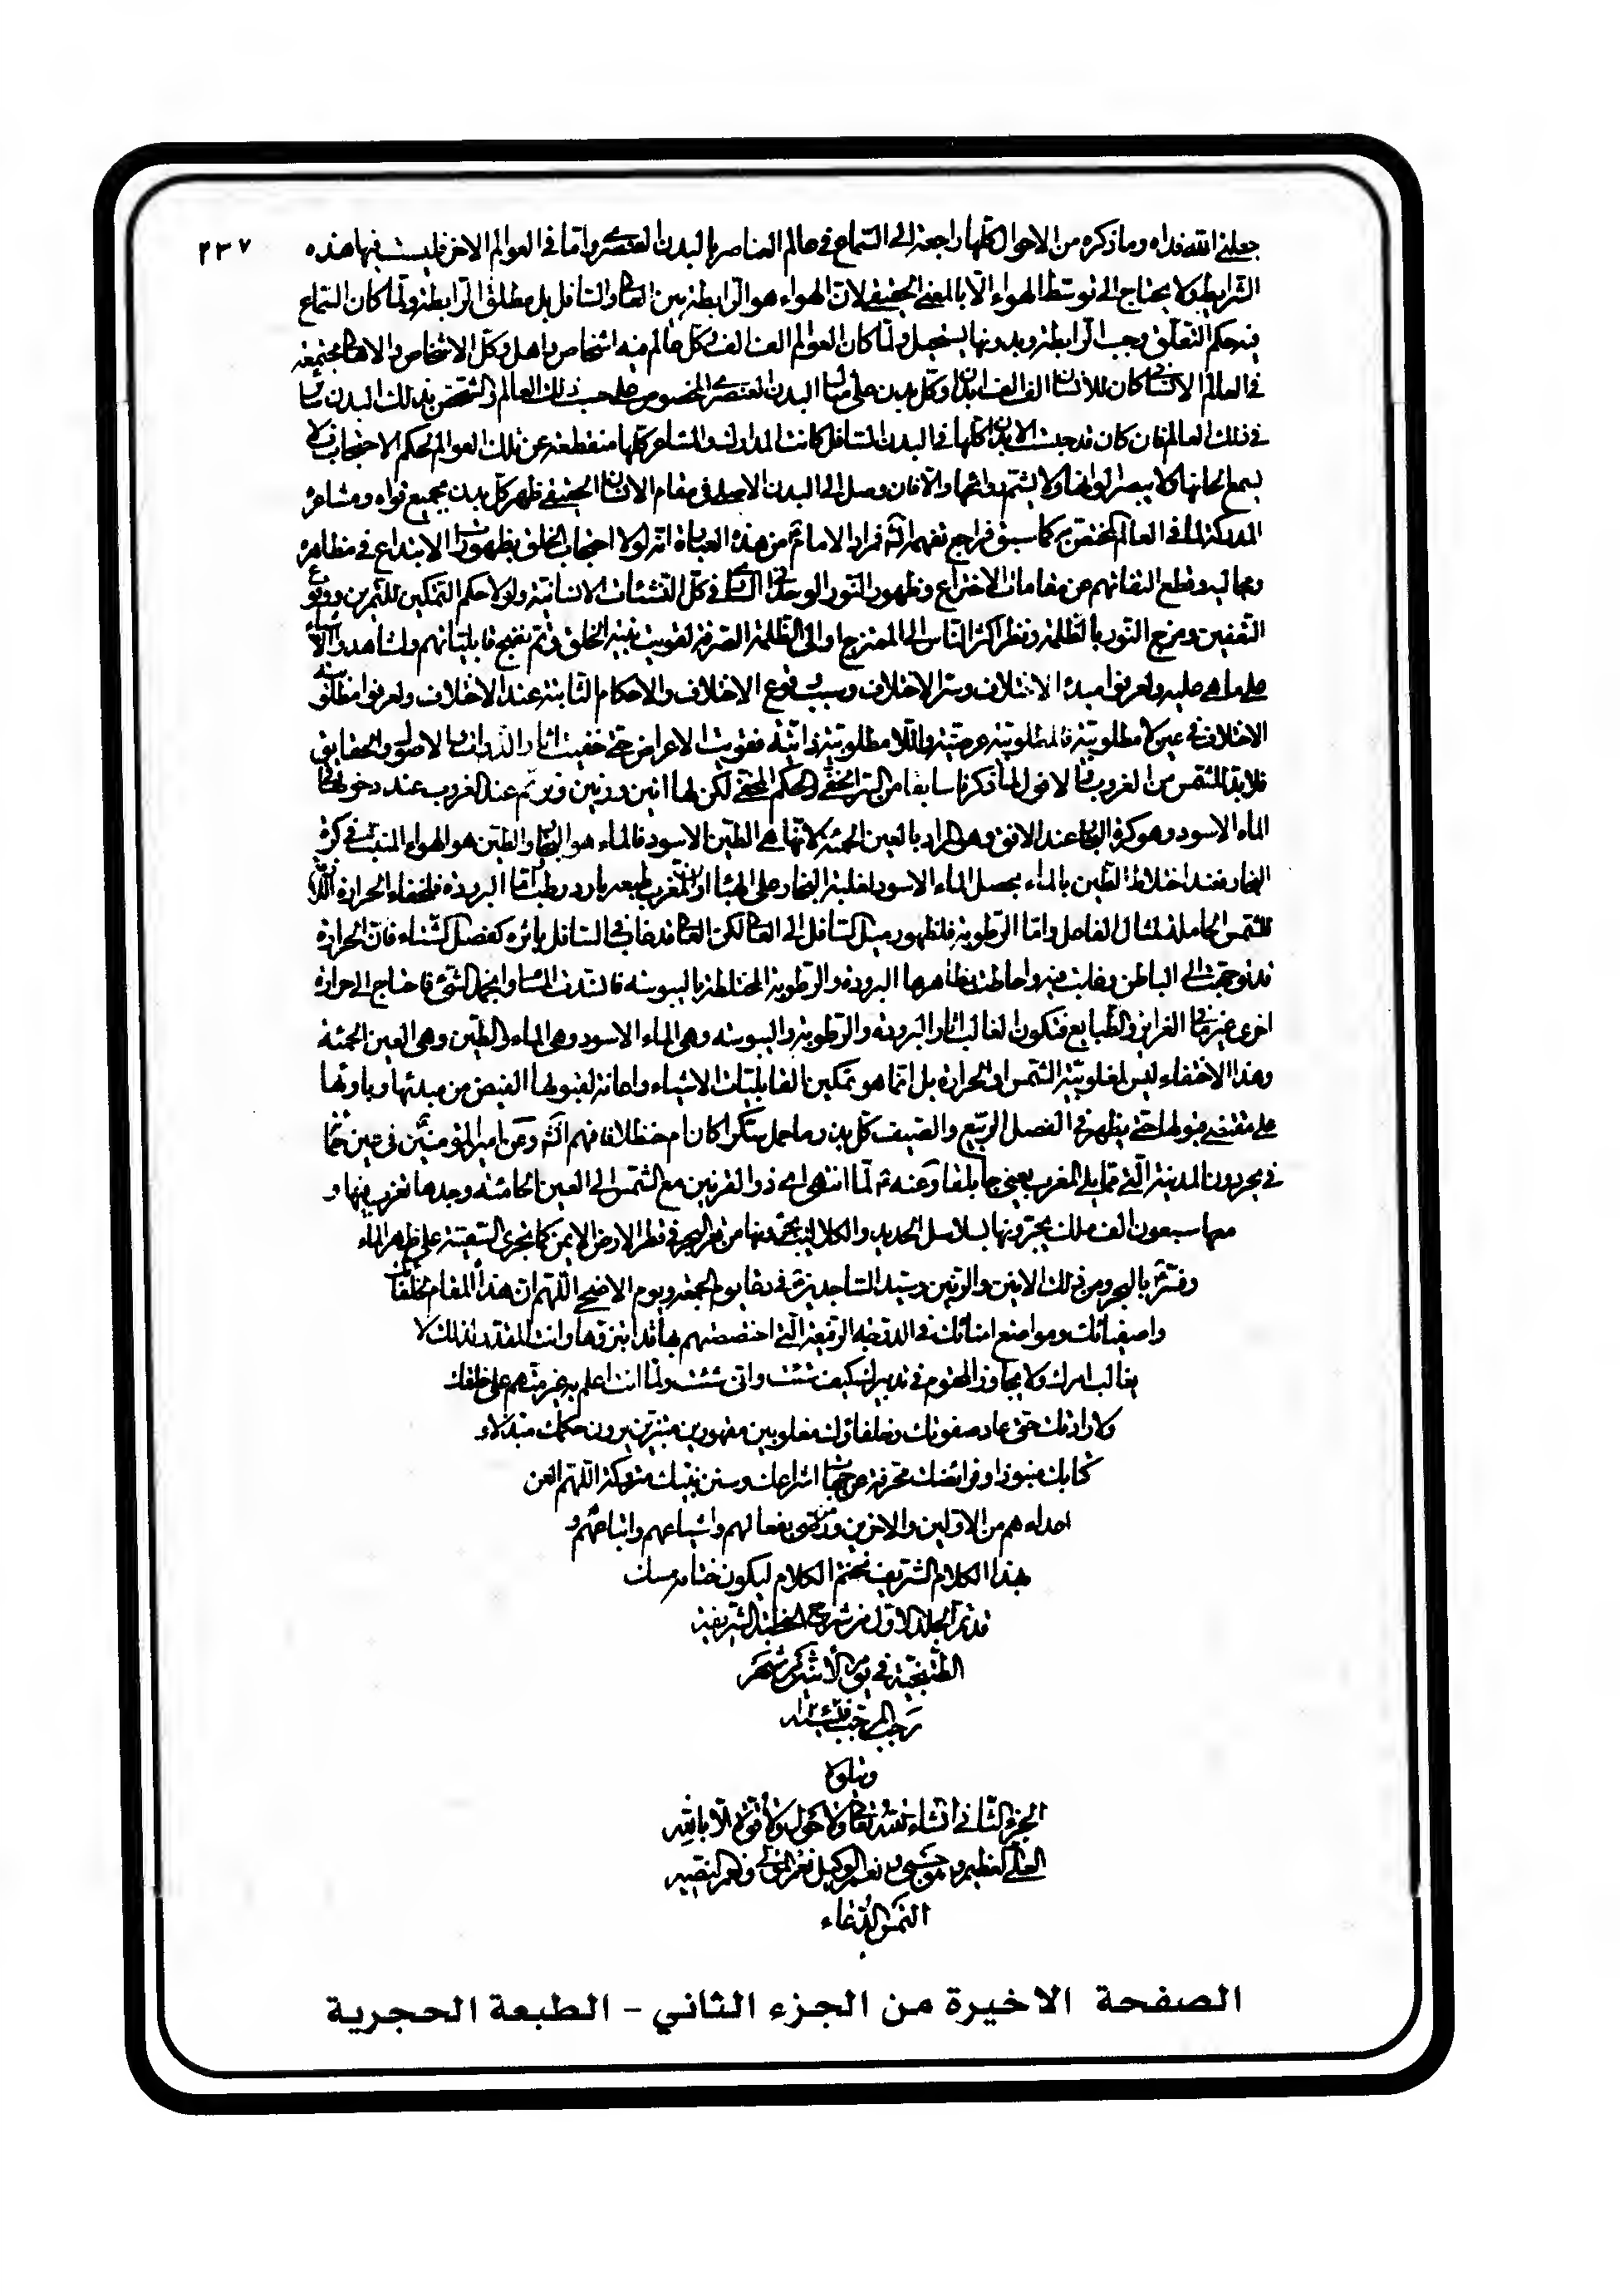 ٢٣٧
جعلني الله فداه وما ذكره من الاحوال كلها راجعة الى السماع في عالم العناصر بالبدن العنصري واما في العوالم الاخر فليست فيها هذه
الشرايط ولا يحتاج الى توسط الهواء الا بالمعنى الحقيقي لان الهواء هو الرابطة بين العالي والسافل بل مطلق الرابطة ولما كان السماع
فيه حكم التعلق وجب الرابطة وبدونها يستحيل ولما كان العوالم الف الف وكل عالم فيه اشخاص واهل وكل الاشخاص والاهالي مجتمعة
في العالم الانساني كان للانسان الف الف ابدان وكل بدن على مثال البدن العنصري المخصوص على حسب ذلك العالم والشخص بذلك البدن
في ذلك العالم فان كان قد جبت الابدان كلها في البدن السافل كانت المدارك والمشاعر كلها منقطعة عن تلك العوالم لحكم الاحتجاب فلا
يسمع الحانها ولا يبصر الوانها ولا يشم روائحها والا فان وصل الى البدن الاصلي في مقام الانسان الحقيقي ظهر كل بدن بجميع قواه ومشاعره
المدركة لما في العالم المختص به كما سبق فراجع تفهم انش فمراد الامام من هذه العبارة انه لولا احتجاب الخلق بظهورات الابتداع في مظاهره
ومجاليه وقطع التفاتهم عن مقامات الاختراع وظهور النور الوحداني الساري في كل النشئات الانسانية ولولا حكم التمكين للتمرين ووقوع
النور بالظلمة ونظر اكثر الناس الى الممتزج او الى الظلمة الصرفة لقويت بنية الخلق وتم نضج قابلياتهم ولشاهدوا الاشياء
على ما هي عليه ولعرفوا مبدء الائتلاف وسر الاختلاف وسبب وقوع الاختلاف والاحكام الثابتة عند الاختلاف ولعرفوا مطلوبية
الاختلاف في عين لا مطلوبيته فالمطلوبية عرضية واللا مطلوبية ذاتية فقويت الاعراض حتى خفيت اثار الذوات والاصول والحقايق
فلابد للشمس من الغروب لا الافول لما ذكرنا سابقا من السر الخفي والحكم المخفي لكن لها انين ورنين وترنم عند الغروب عند دخولها في
الماء الاسود وهو كرة البخار عند الافق وهو المراد بالعين الحمئة لانها هي الطين الاسود فالماء هو البخار والطين هو الهواء المنبث في كرة
البخار فعند اختلاط الطين بالماء يحصل الماء الاسود لغلبة البخار على الهباء والمغرب طبعه بارد رطب اما البرودة فلخفاء الحرارة
للشمس الحاملة لمثال الفاعل واما الرطوبة فلظهور ميل السافل الى العالي لكن العالي قد غاب في السافل باثره كفصل الشتاء فان الحرارة
قد توجهت الى الباطن وغلبت فيه واحاطت بظاهرها البرودة والرطوبة المختلطة باليبوسة فاشتدت المسام وانجمد الشيء فاحتاج الى حرارة
اخرى غير ما في الغرايز والطبايع فتكون الغالب اثار البرودة والرطوبة واليبوسة وهي الماء الاسود وهي الماء والطين وهي العين الحمئة
وهذا الاختفاء ليس لمغلوبية الشمس او الحرارة بل انما هو تمكين لقابليات الاشياء واعانة لقبولها الفيض من مبدئها وبارئها
على مقتضى قبولها حتى يظهر في الفصل الربيع والصيف كل بذر ما حمل سكرا كان ام حنظلا فافهم وعن امير المؤمنين في عين حمئة
في بحر دون المدينة التي مما يلي المغرب يعني جابلقا وعنه لما انتهى اي ذو القرنين مع الشمس الى العين الحامئة وجدها تغرب فيها و
معها سبعون الف ملك يجرونها بسلاسل الحديد والكلاليب يجرونها من قعر البحر في قطر الارض الايمن كما تجري السفينة على ظهر الماء
وفسر بالبحر ومن ذلك الانين والرنين وسيد الساجدين في دعا يوم الجمعة ويوم الاضحى اللهم ان هذا المقام لخلفائك
واصفيائك ومواضع امنائك في الدرجة الرفيعة التي اختصصتهم بها قد ابتزوها وانت المقدر لذلك لا
يغالب امرك ولا يجاوز المحتوم من تدبيرك كيف شئت وانى شئت ولما انت اعلم به غير متهم على خلقك
ولا ارادتك حتى عاد صفوتك وخلفاؤك مغلوبين مقهورين مبتزين يرون حكمك مبدلا و
كتابك منبوذا وفرائضك محرفة عن جهات اشراعك وسنن نبيك متروكة اللهم العن
اعداءهم من الاولين والاخرين ومن رضى بفعالهم واشياعهم واتباعهم و
بهذا الكلام الشريف نختم الكلام ليكون ختامه مسك
قد تم المجلد الاول من شرح الخطبة الشريفة
الطتنجية في يوم الاثنين شهر
رجب المرجب
ويتلوه
الجزء الثاني انشاء الله تعالى ولا حول ولا قوة الا بالله
العلي العظيم وهو حسبي ونعم الوكيل نعم المولى ونعم النصير
التمس الدعاء
الصفحة الاخيرة من الجزء الثاني - الطبعة الحجرية